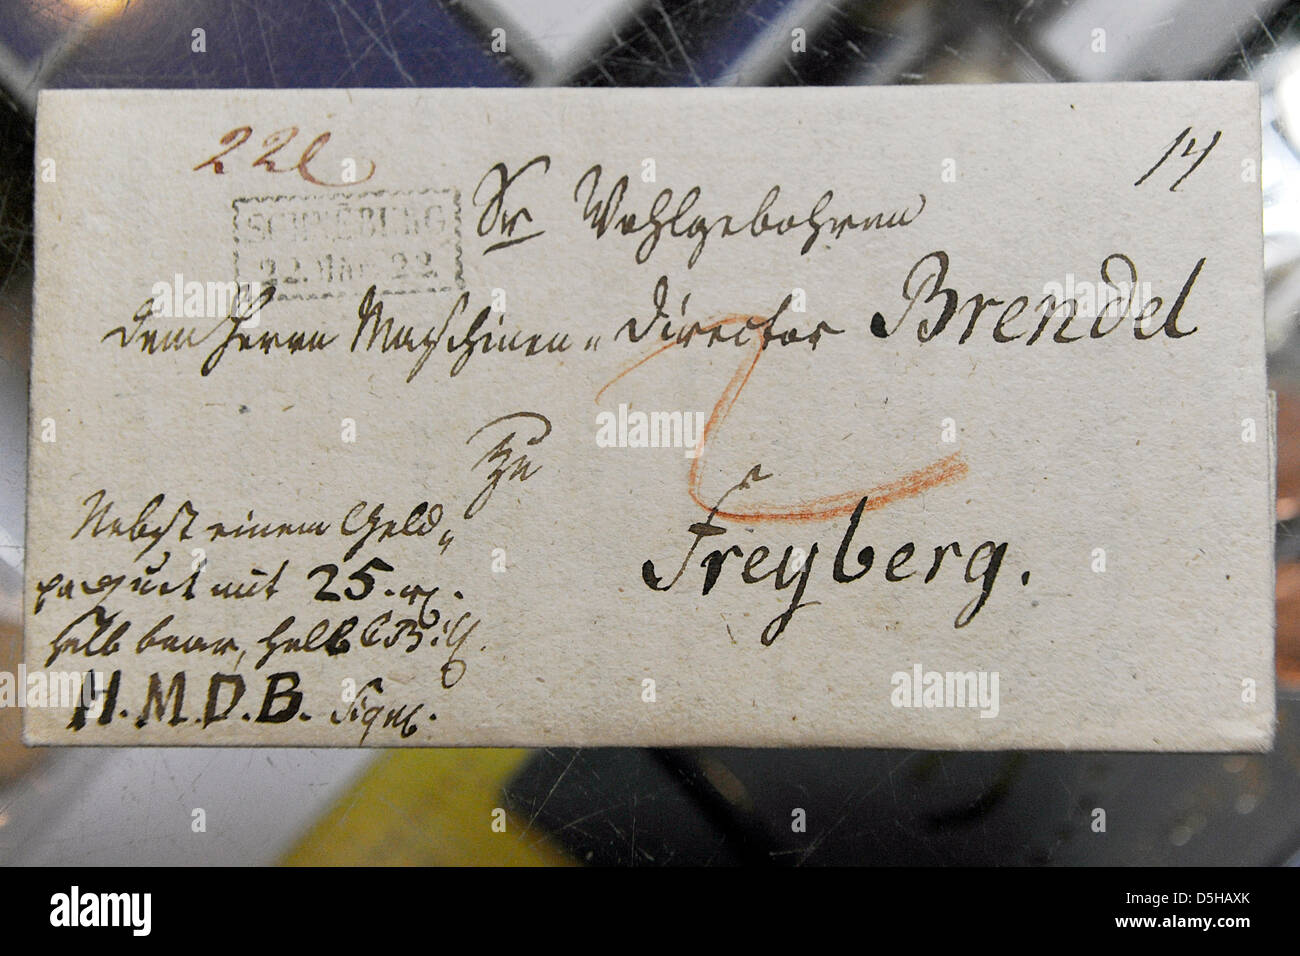 22
14
SCHNEEBURG
22. Mär. 22
Sr Wohlgebohren
dem Herrn Maschinen=Director Brendel
zu
Freyberg.
Nebst einem Geld=
paquet mit 25.
halb baar, halb
H.M.D.B. Sign.
alamy
Image ID: D5HAXK
www.alamy.com